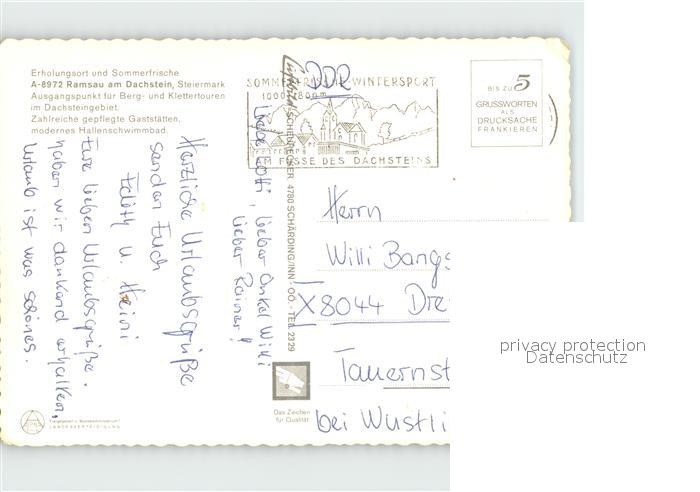 Erholungsort und Sommerfrische
A-8972 Ramsau am Dachstein, Steiermark
Ausgangspunkt für Berg- und Klettertouren
im Dachsteingebiet.
Zahlreiche gepflegte Gaststätten,
modernes Hallenschwimmbad.
SOMMERFRISCHE WINTERSPORT
1000-2800m
AM FUSSE DES DACHSTEINS
DDR
BIS ZU 5
GRUSSWORTEN
ALS
DRUCKSACHE
FRANKIEREN
Liebe Lotti, lieber Onkel Willi
lieber Rainer!
Herzliche Urlaubsgrüße
senden Euch
Edith u. Heini
Eure lieben Urlaubsgrüße
haben wir dankend erhalten,
Urlaub ist was schönes.
4780 SCHÄRDING/INN · OÖ · TEL. 2329
Herrn
Willi Bangs
X8044 Dre
Tauernst
bei Wustli
Das Zeichen
für Qualität
LANDESVERTEIDIGUNG
privacy protection
Datenschutz